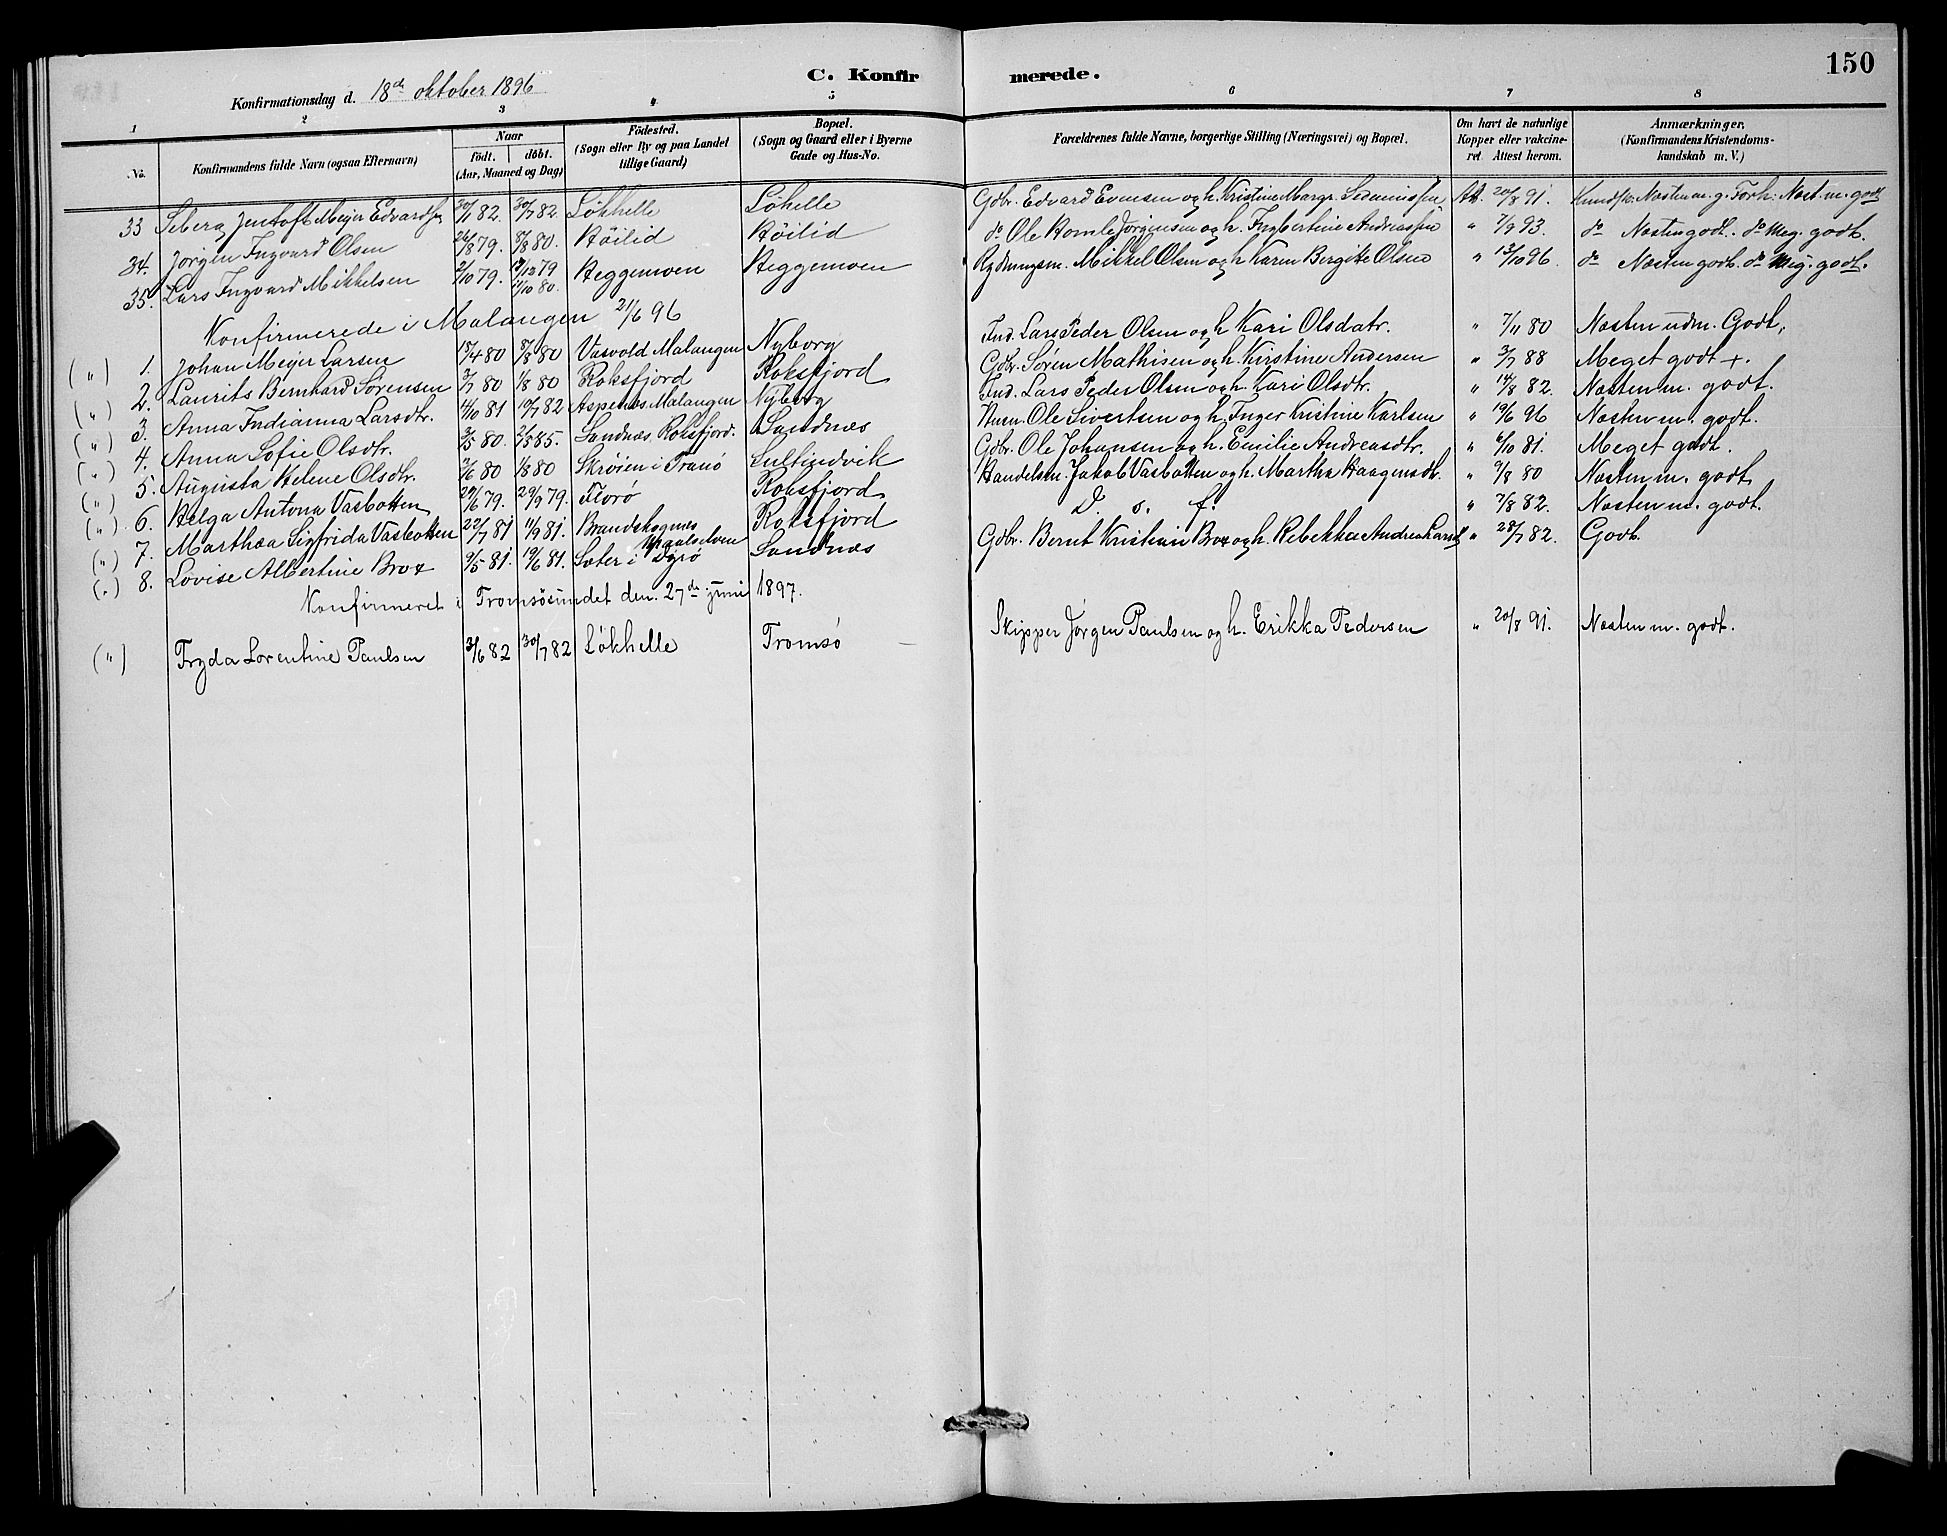 150
C. Konfirmerede.
Konfirmationsdag d. 18de oktober 1896
1 2 3 4 5 6 7 8
No. Konfirmandens fulde Navn (ogsaa Efternavn) Naar födt. döbt. (Aar, Maaned og Dag) Födested. (Sogn eller By og paa Landet tillige Gaard) Bopæl. (Sogn og Gaard eller i Byerne Gade og Hus-No. Forældrenes fulde Navne, borgerlige Stilling (Næringsvei) og Bopæl. Om havt de naturlige Kopper eller vakcineret. Attest herom. Anmærkninger, (Konfirmandens Kristendomskundskab m. V.)
33 Seberg Jentoft Mejer Edvardsen 20/1 82. 30/7 82. Løkhelle Løhelle Gdbr. Edvard Evensen og h. Kristine Margr. Att. 20/8 91. Kundsk. Næsten m. g. Forh. Næst. m. godt
34. Jørgen Ingvard Olsen 26/8 79. 8/8 80. Høilid Høilid do Ole Hemle Jørgensen og h. Ingbertine Andreassen " 7/9 93. do Næsten godt. do Meg. godt.
35. Lars Ingvard Mikkelsen 2/10 79. 12/12 79 17/10 80. Heggemoen Heggemoen Rydningsm. Mikkel Olsen og h. Karen Bergitte Olsen " 13/10 96. do Næsten godt. do Meg. godt.
Konfirmerede i Malangen 21/6 96
(") 1. Johan Mejer Larsen 15/4 80 8/8 80 Vasvold Malangen Nyborg Ind. Lars Peder Olsen og h. Kari Olsdatr. " 7/11 80 Næsten udm. Godt,
(") 2. Laurits Bernhard Sørensen 3/7 80 1/8 80 Roksfjord Roksfjord Gdbr. Søren Mathisen og h. Kirstine Andersen " 3/7 88 Meget godt +.
(") 3. Anna Indianna Larsdtr. 14/10 81 19/7 82 Aspenes Malangen Nyborg Ind. Lars Peder Olsen og h. Kari Olsdtr. " 14/8 82. Næsten m. godt.
(") 4. Anna Sofie Olsdtr. 3/5 80. 2/5 85. Sandnæs, Roksfjord. Sandnæs Husm. Ole Sivertsen og h. Inger Kristine Karlsen " 19/6 96 Næsten m. godt.
(") 5. Augusta Helene Olsdtr. 2/6 80 1/8 80 Skrøien i Tranö Lultindvik Gdbr. Ole Johansen og h. Emilie Andreasdtr. " 6/10 81. Meget godt.
(") 6. Helga Antona Vasbotten 29/6 79. 29/9 79. Florø Roksfjord Handelsm. Jakob Vasbotten og h. Martha Haagensdt. " 9/8 80 Næsten m. godt
(") 7. Marthea Sigfrida Vasbotten 22/7 81 11/9 81. Brandskognes Maalselven Roksfjord D. s. f. " 7/8 82. Næsten m. godt.
(") 8. Lovise Albertine Brox 9/5 81. 19/6 81. Sæter i Dyrø Sandnæs Gdbr. Bernt Kristian Brox og h. Rebekka Andrea Larsd " 28/7 82. Godt.
Konfirmeret i Tromsøsundet den 27de juni 1897.
(") Fryda Lorentine Paulsen 3/6 82 30/7 82 Løkhelle Tromsø Skipper Jørgen Paulsen og h. Erikka Pedersen " 20/8 91. Næsten m. godt.